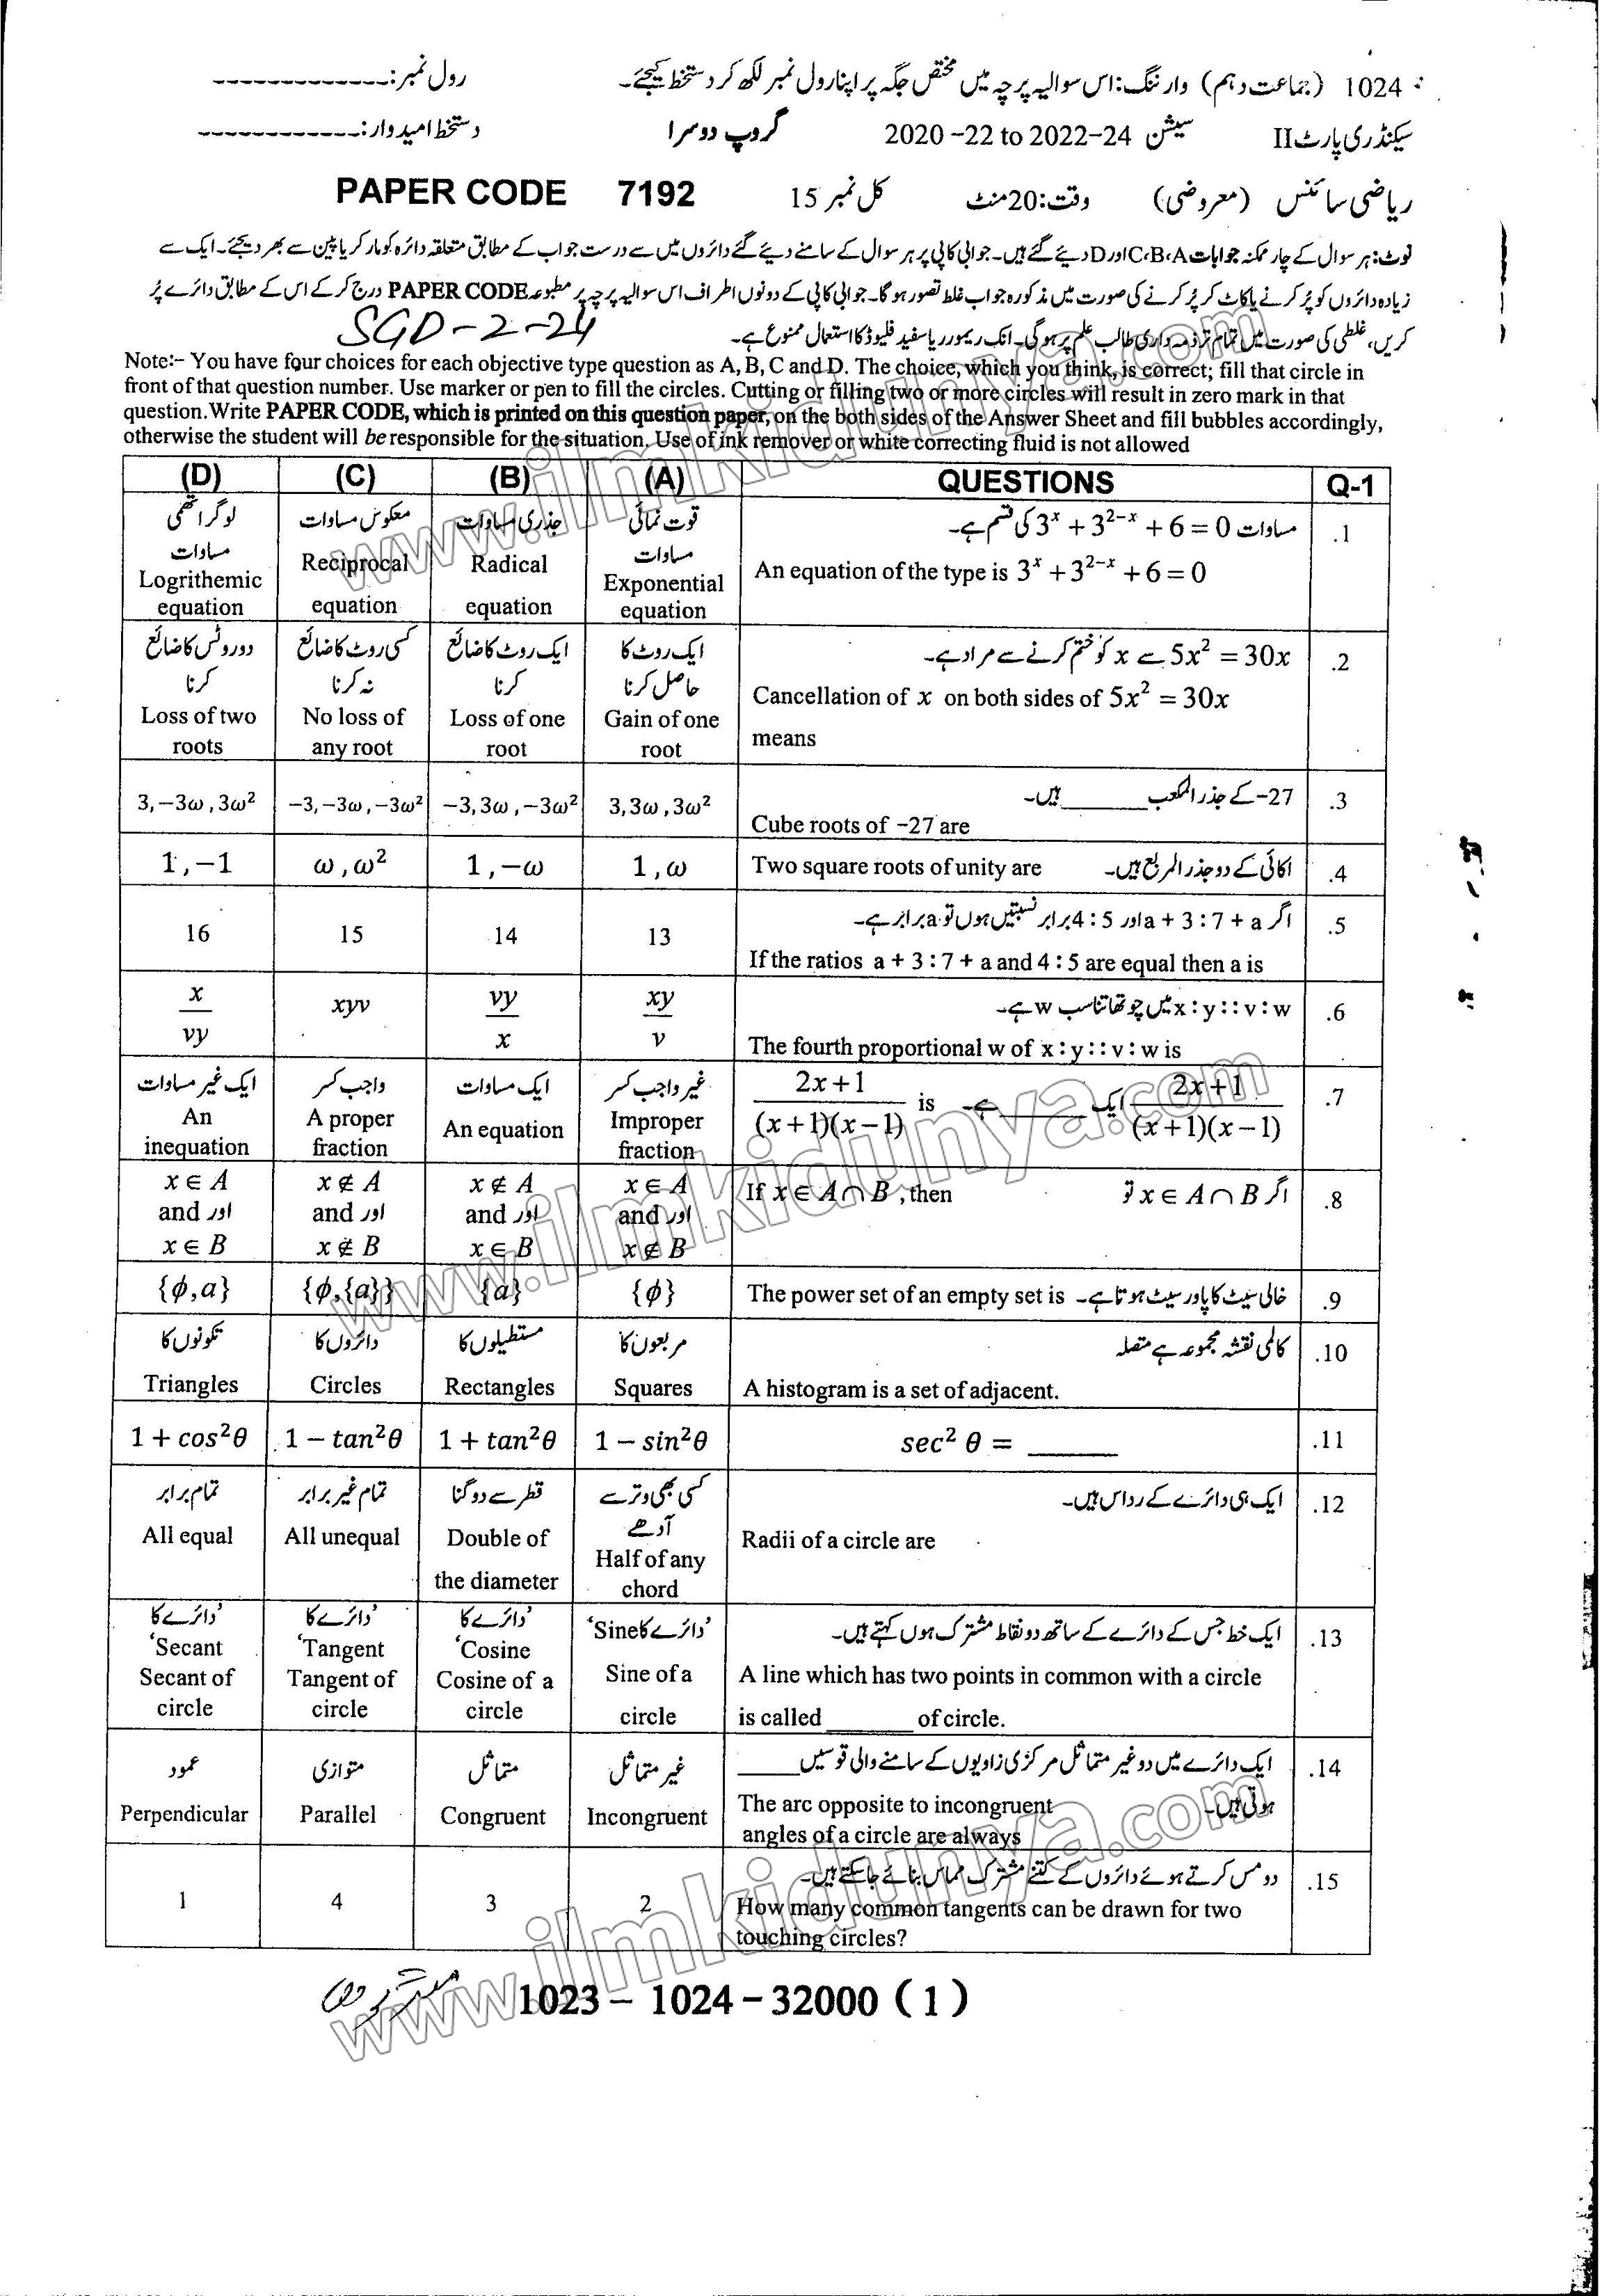 1024 (جماعت دہم) وارننگ: اس سوالیہ پرچہ میں مختص جگہ پر اپنا رول نمبر لکھ کر دستخط کیجئے۔ رول نمبر: -------------
سیکنڈری پارٹ II سیشن 2020 -22 to 2022-24 گروپ دوسرا دستخط امیدوار: ------------
ریاضی سائنس (معروضی) وقت: 20 منٹ کل نمبر 15 PAPER CODE 7192
نوٹ: ہر سوال کے چار ممکنہ جوابات C،B،A اور D دیے گئے ہیں۔ جوابی کاپی پر ہر سوال کے سامنے دیے گئے دائروں میں سے درست جواب کے مطابق متعلقہ دائرہ کو مارکر یا پین سے بھر دیجئے۔ ایک سے
زیادہ دائروں کو پُر کرنے یا کاٹ کر پُر کرنے کی صورت میں مذکورہ جواب غلط تصور ہو گا۔ جوابی کاپی کے دونوں اطراف اس سوالیہ پرچہ پر مطبوعہ PAPER CODE درج کر کے اس کے مطابق دائرے پُر
کریں، غلطی کی صورت میں تمام تر ذمہ داری طالب علم پر ہو گی۔ انک ریموور یا سفید فلیوڈ کا استعمال ممنوع ہے۔
SGD-2-24
Note:- You have four choices for each objective type question as A, B, C and D. The choice, which you think, is correct; fill that circle in
front of that question number. Use marker or pen to fill the circles. Cutting or filling two or more circles will result in zero mark in that
question.Write PAPER CODE, which is printed on this question paper, on the both sides of the Answer Sheet and fill bubbles accordingly,
otherwise the student will be responsible for the situation. Use of ink remover or white correcting fluid is not allowed
(D) (C) (B) (A) QUESTIONS Q-1
.1 مساوات 3ˣ + 3²⁻ˣ + 6 = 0 کی قسم ہے۔
An equation of the type is 3ˣ + 3²⁻ˣ + 6 = 0
قوت نمائی مساوات
Exponential equation
جذری مساوات
Radical equation
معکوس مساوات
Reciprocal equation
لوگرتھمی مساوات
Logrithemic equation
.2 5x² = 30x سے x کو ختم کرنے سے مراد ہے۔
Cancellation of x on both sides of 5x² = 30x
means
ایک روٹ کا حاصل کرنا
Gain of one root
ایک روٹ کا ضائع کرنا
Loss of one root
کسی روٹ کا ضائع نہ کرنا
No loss of any root
دو روٹس کا ضائع کرنا
Loss of two roots
.3 -27 کے جذر المکعب ______ ہیں۔
Cube roots of -27 are
3, 3ω, 3ω²
-3, 3ω, -3ω²
-3, -3ω, -3ω²
3, -3ω, 3ω²
.4 اکائی کے دو جذر المربع ہیں۔
Two square roots of unity are
1, ω
1, -ω
ω, ω²
1, -1
.5 اگر a + 3 : 7 + a اور 4 : 5 برابر نسبتیں ہوں تو a برابر ہے۔
If the ratios a + 3 : 7 + a and 4 : 5 are equal then a is
13
14
15
16
.6 x : y : : v : w میں چوتھا تناسب w ہے۔
The fourth proportional w of x : y : : v : w is
xy/v
vy/x
xyv
x/vy
.7 (2x+1)/((x+1)(x-1)) ایک ______ ہے۔
(2x+1)/((x+1)(x-1)) is
غیر واجب کسر
Improper fraction
ایک مساوات
An equation
واجب کسر
A proper fraction
ایک غیر مساوات
An inequation
.8 اگر x ∈ A ∩ B تو
If x ∈ A ∩ B , then
x ∈ A and اور x ∉ B
x ∉ A and اور x ∈ B
x ∉ A and اور x ∉ B
x ∈ A and اور x ∈ B
.9 خالی سیٹ کا پاور سیٹ ہوتا ہے۔
The power set of an empty set is
{ϕ}
{a}
{ϕ,{a}}
{ϕ,a}
.10 کالمی نقشہ مجموعہ ہے متصلہ
A histogram is a set of adjacent.
مربعوں کا
Squares
مستطیلوں کا
Rectangles
دائروں کا
Circles
تکونوں کا
Triangles
.11 sec² θ = ______
1 - sin²θ
1 + tan²θ
1 - tan²θ
1 + cos²θ
.12 ایک ہی دائرے کے رداس ہیں۔
Radii of a circle are
کسی بھی وتر سے آدھے
Half of any chord
قطر سے دوگنا
Double of the diameter
تمام غیر برابر
All unequal
تمام برابر
All equal
.13 ایک خط جس کے دائرے کے ساتھ دو نقاط مشترک ہوں کہتے ہیں۔
A line which has two points in common with a circle
is called ______ of circle.
'دائرے کا Sine'
Sine of a circle
'دائرے کا
'Cosine
Cosine of a circle
'دائرے کا
'Tangent
Tangent of circle
'دائرے کا
'Secant
Secant of circle
.14 ایک دائرے میں دو غیر متماثل مرکزی زاویوں کے سامنے والی قوسیں ______
ہوتی ہیں۔
The arc opposite to incongruent
angles of a circle are always
غیر متماثل
Incongruent
متماثل
Congruent
متوازی
Parallel
عمود
Perpendicular
.15 دو مس کرتے ہوئے دائروں کے کتنے مشترک مماس بنائے جا سکتے ہیں۔
How many common tangents can be drawn for two
touching circles?
2
3
4
1
1023 – 1024 – 32000 ( 1 )
www.ilmkidunya.com
www.ilmkidunya.com
www.ilmkidunya.com